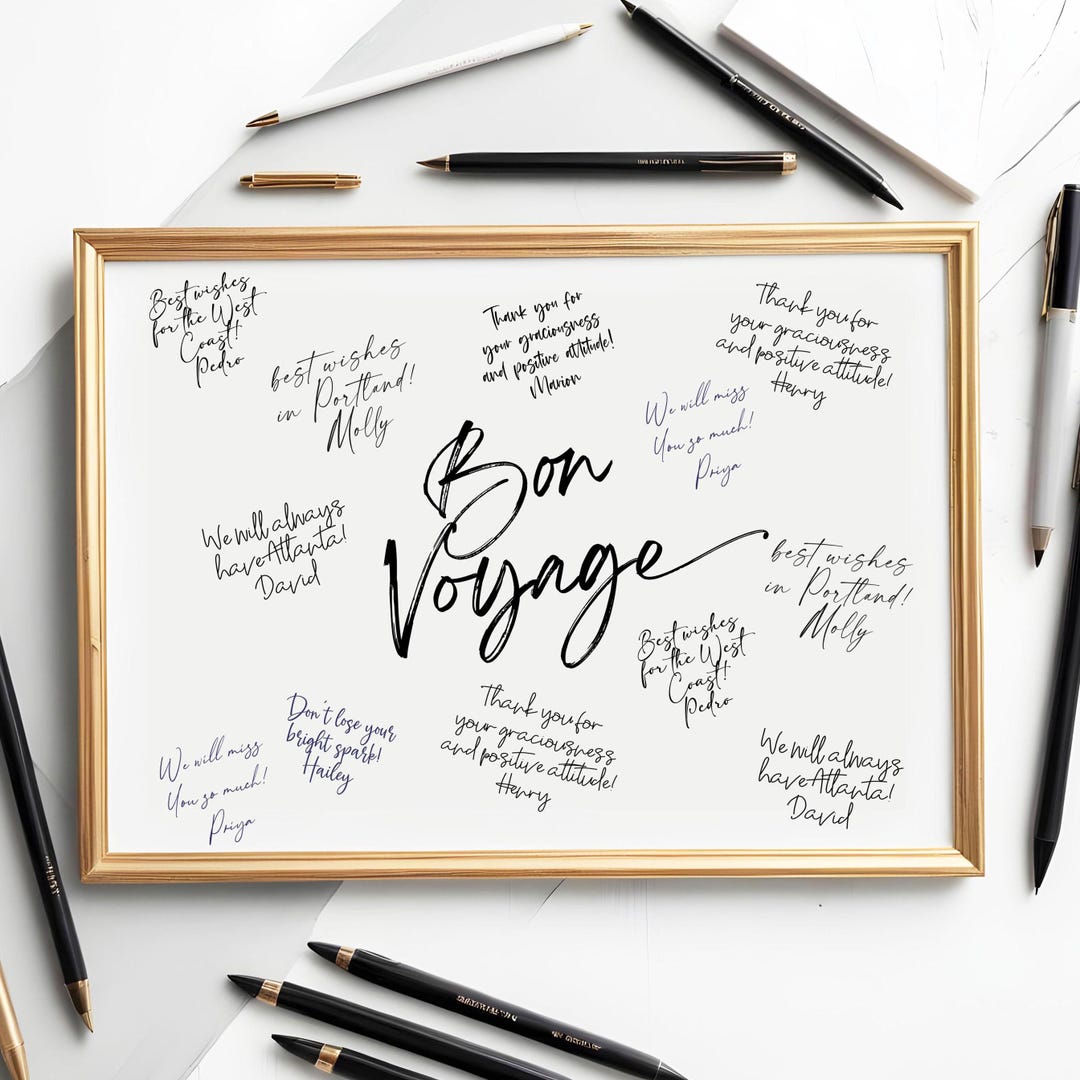 Best wishes
for the West
Coast!
Pedro
best wishes
in Portland!
Molly
Thank you for
your graciousness
and positive attitude!
Marion
Thank you for
your graciousness
and positive attitude!
Henry
We will miss
You so much!
Priya
Bon
Voyage
We will always
have Atlanta!
David
best wishes
in Portland!
Molly
Best wishes
for the West
Coast!
Pedro
We will miss
You so much!
Priya
Don't lose your
bright spark!
Hailey
Thank you for
your graciousness
and positive attitude!
Henry
We will always
have Atlanta!
David